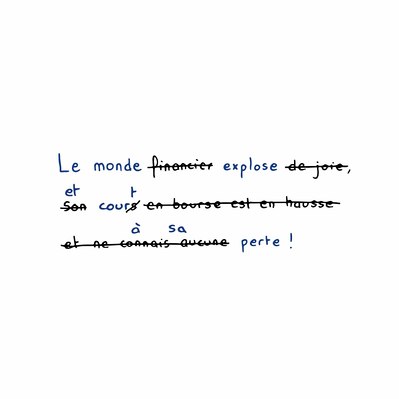 Le monde financier explose de joie,
et t
Son cours en bourse est en hausse
à sa
et ne connais aucune perte !